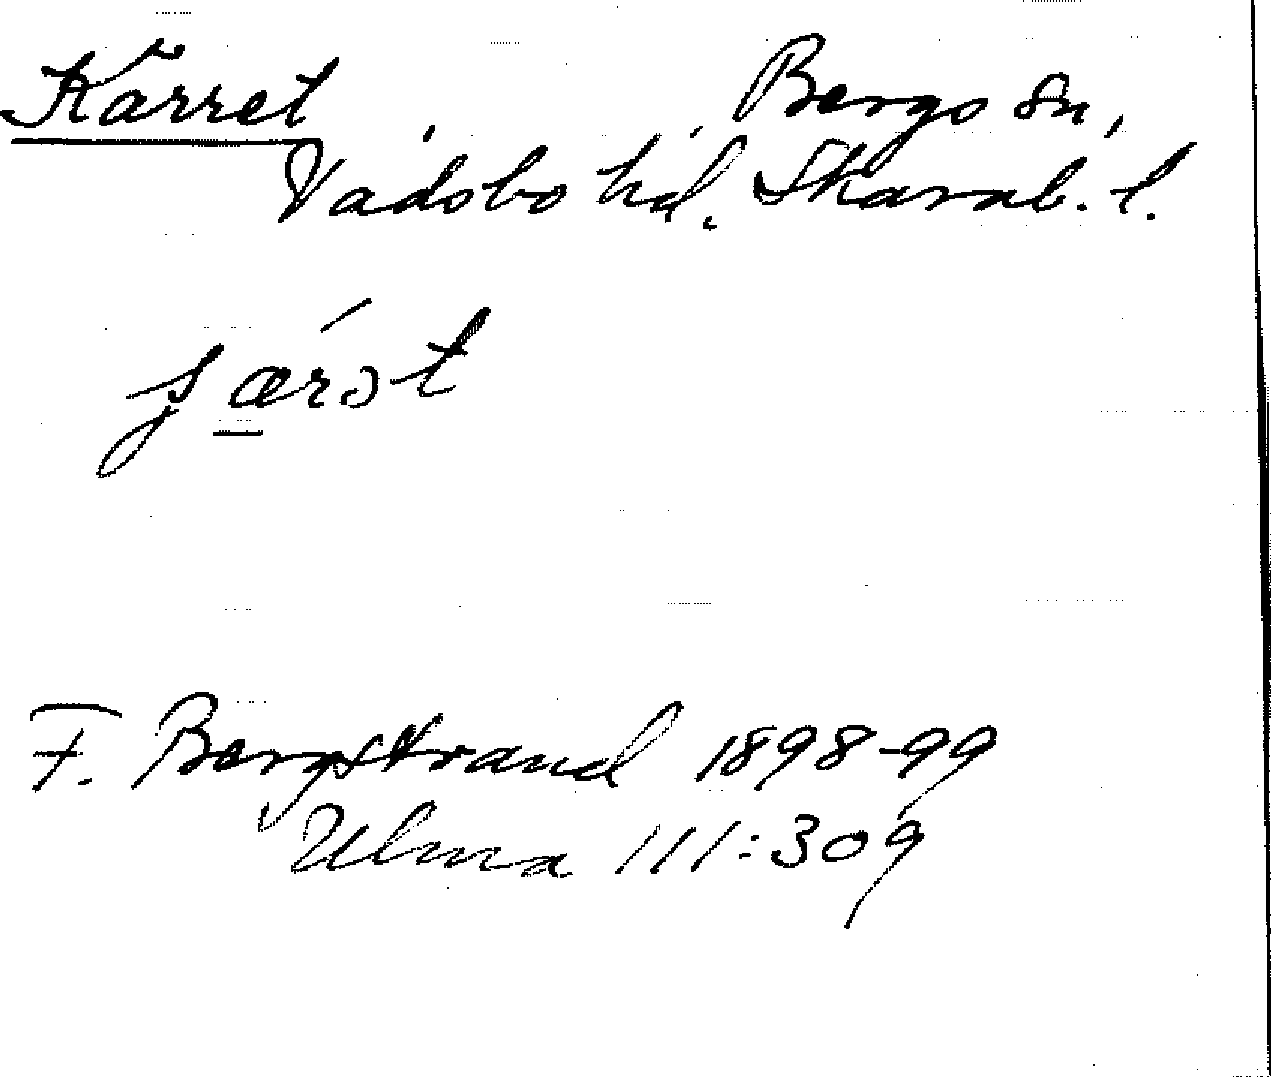 Kärret Bergs sn,
Vadsbo hd. Skarab. l.
F. Bergstrand 1898-99
Ulma 111:309